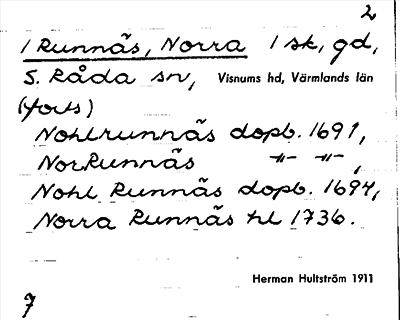 2
1 Runnäs, Norra 1 sk, gd,
S. Råda sn, Visnums hd, Värmlands län
(forts)
Nohlrunnäs dopb. 1691,
Nor Runnäs -"- -"- ,
Nohl Runnäs dopb. 1694,
Norra Runnäs hl 1736.
Herman Hultström 1911
7